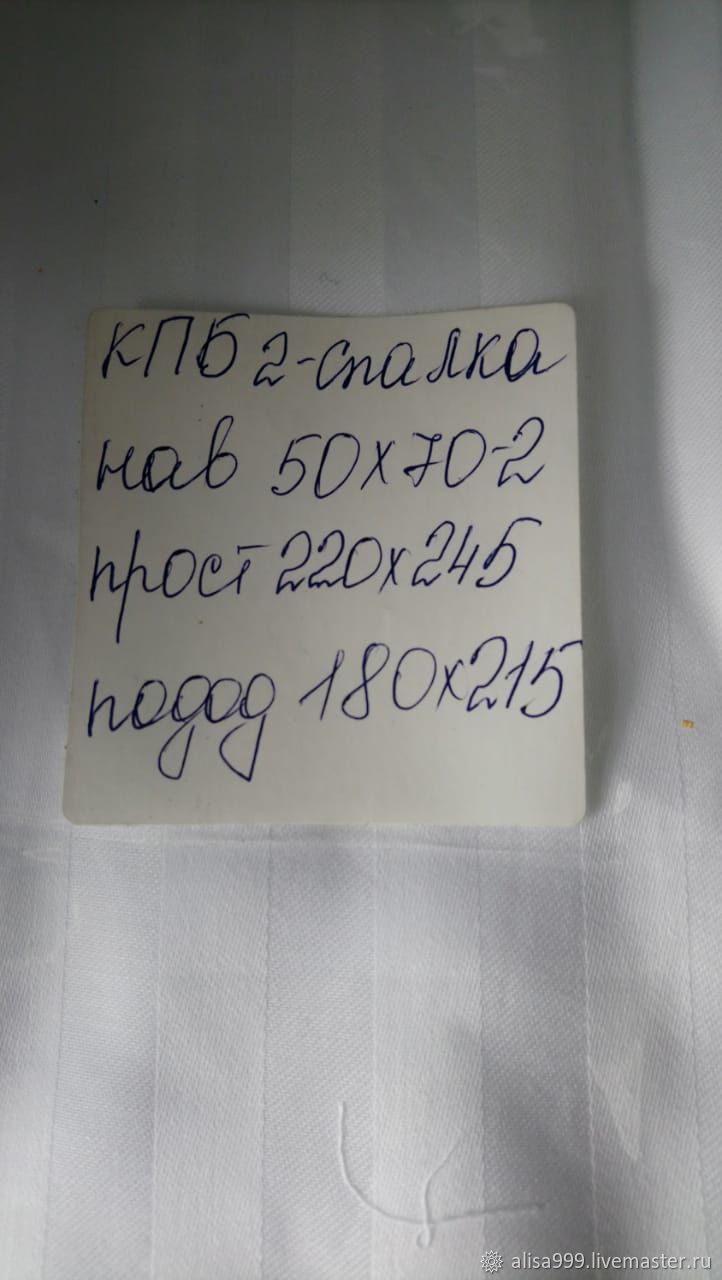 КПБ 2-спалка
нав 50х70-2
прост 220х245
подод 180х215
alisa999.livemaster.ru